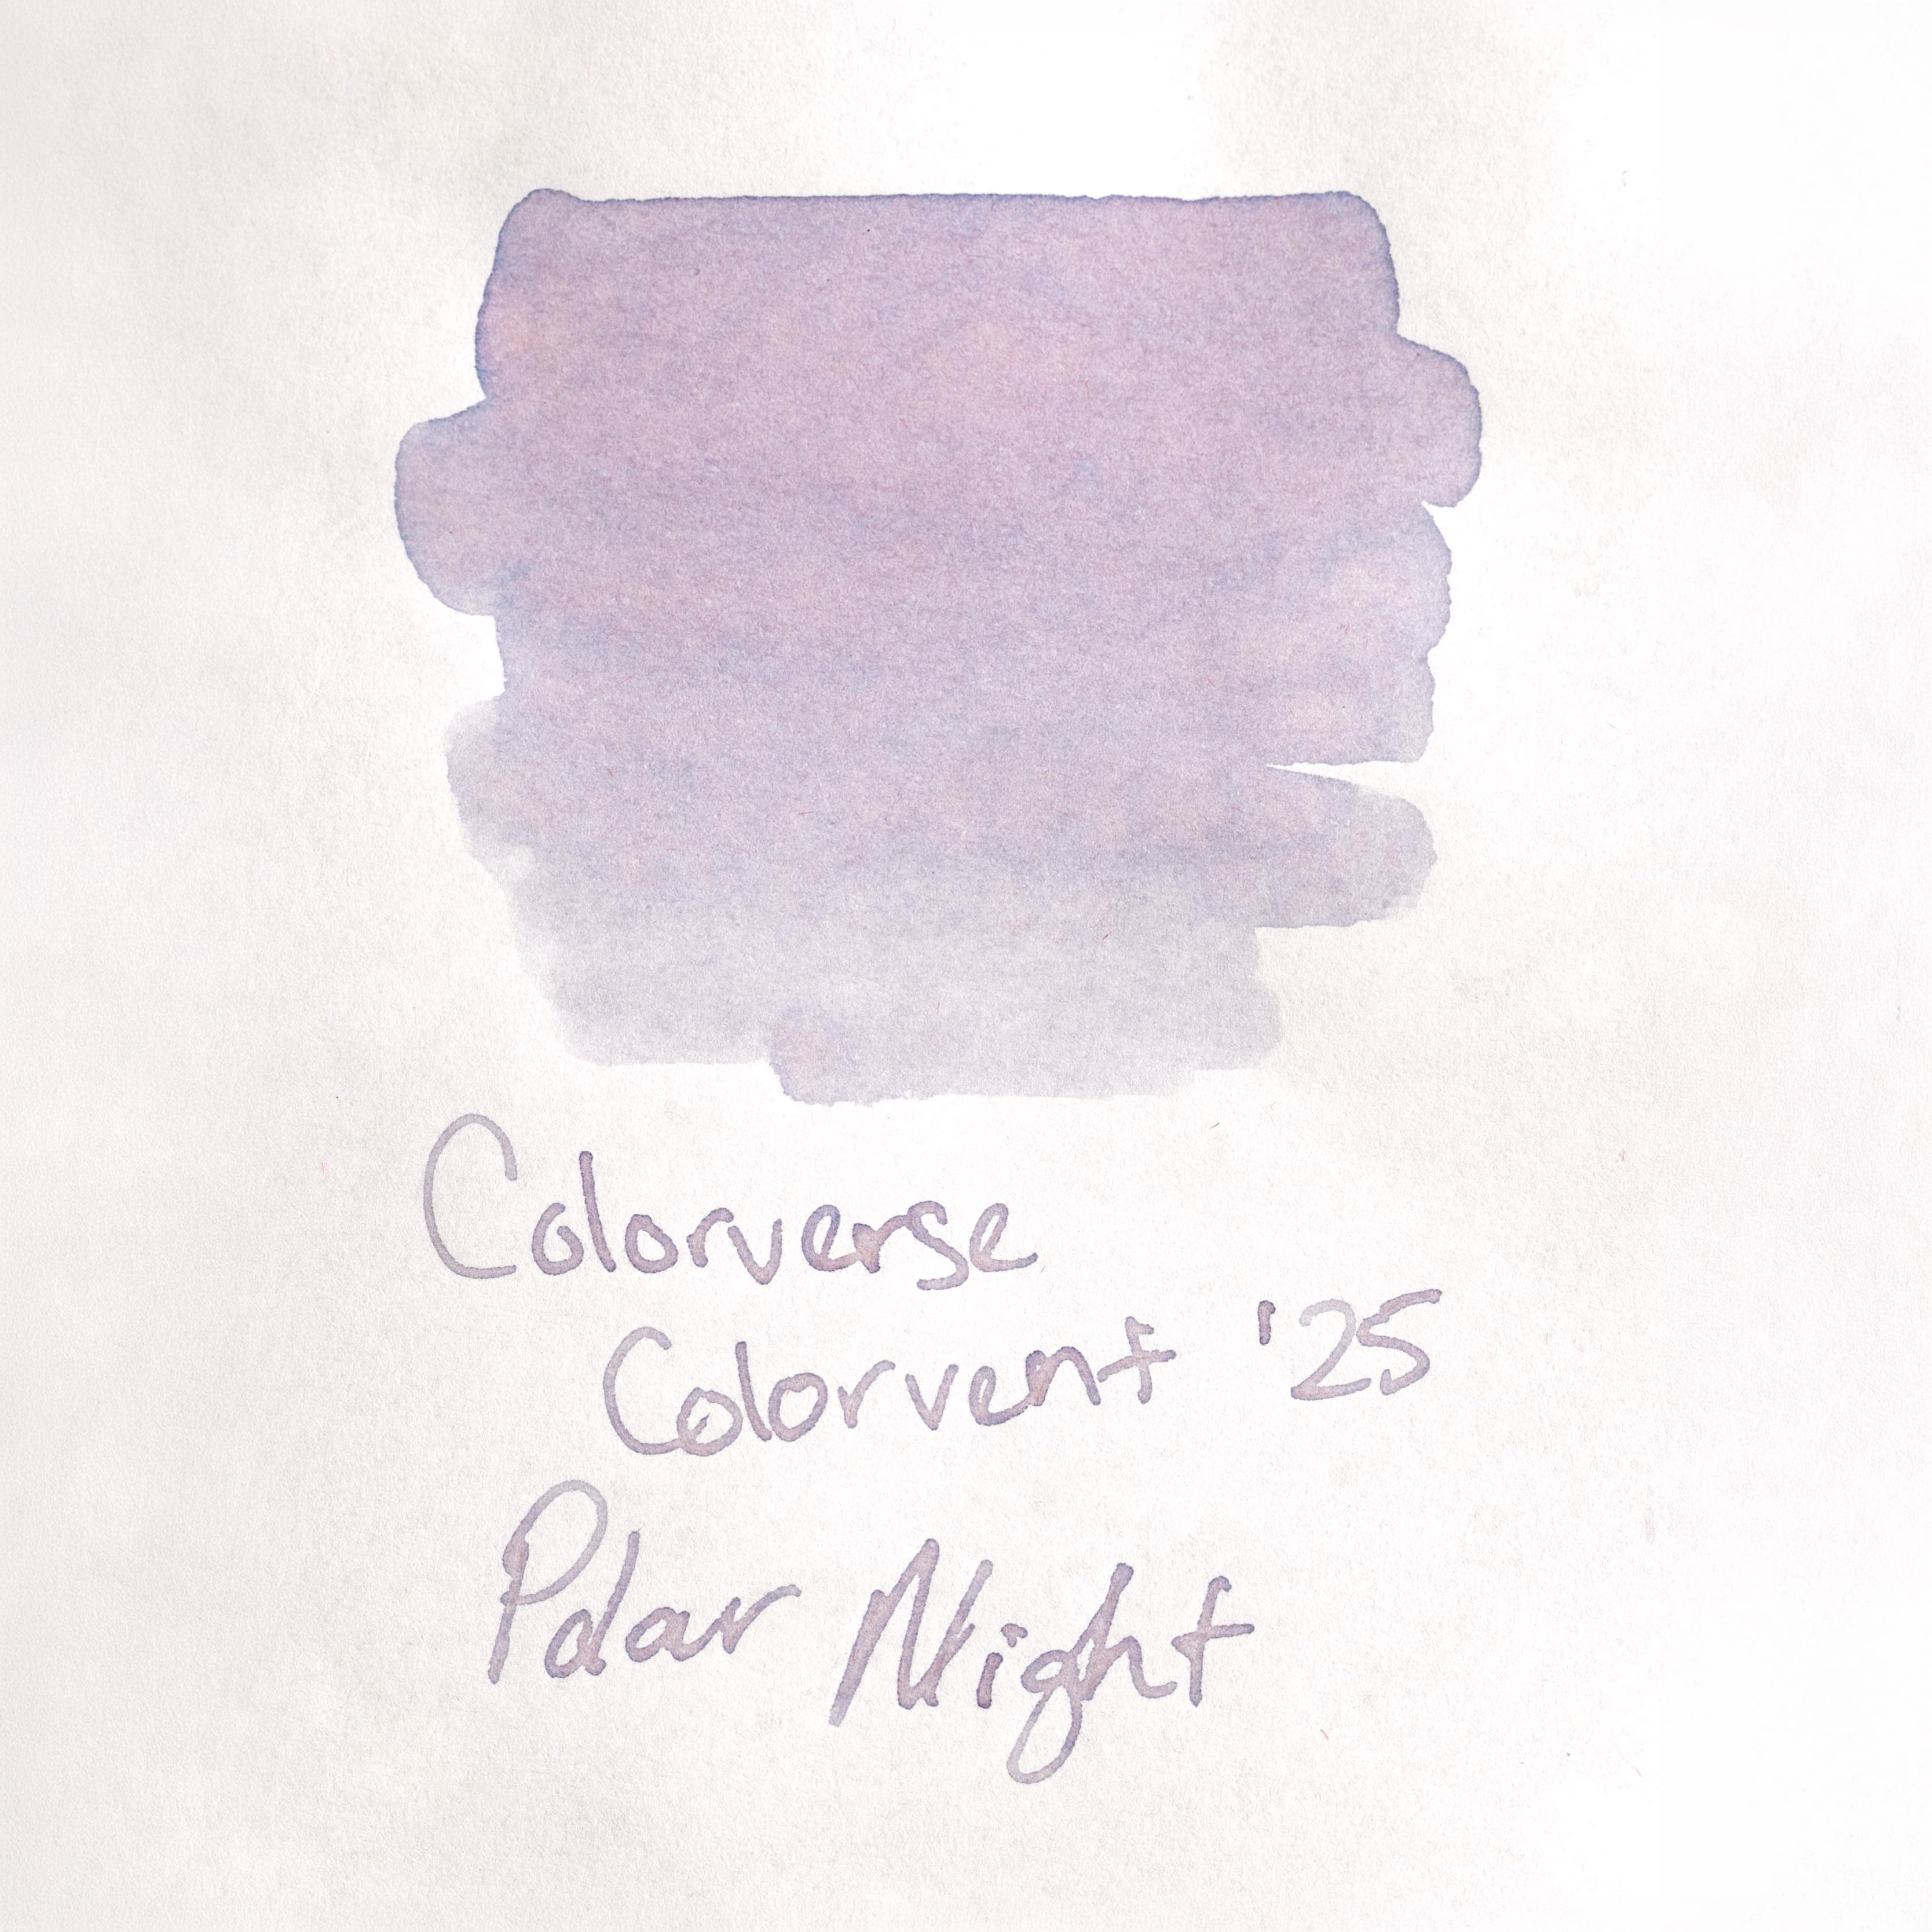 Colorverse
Colorvent '25
Polar Night